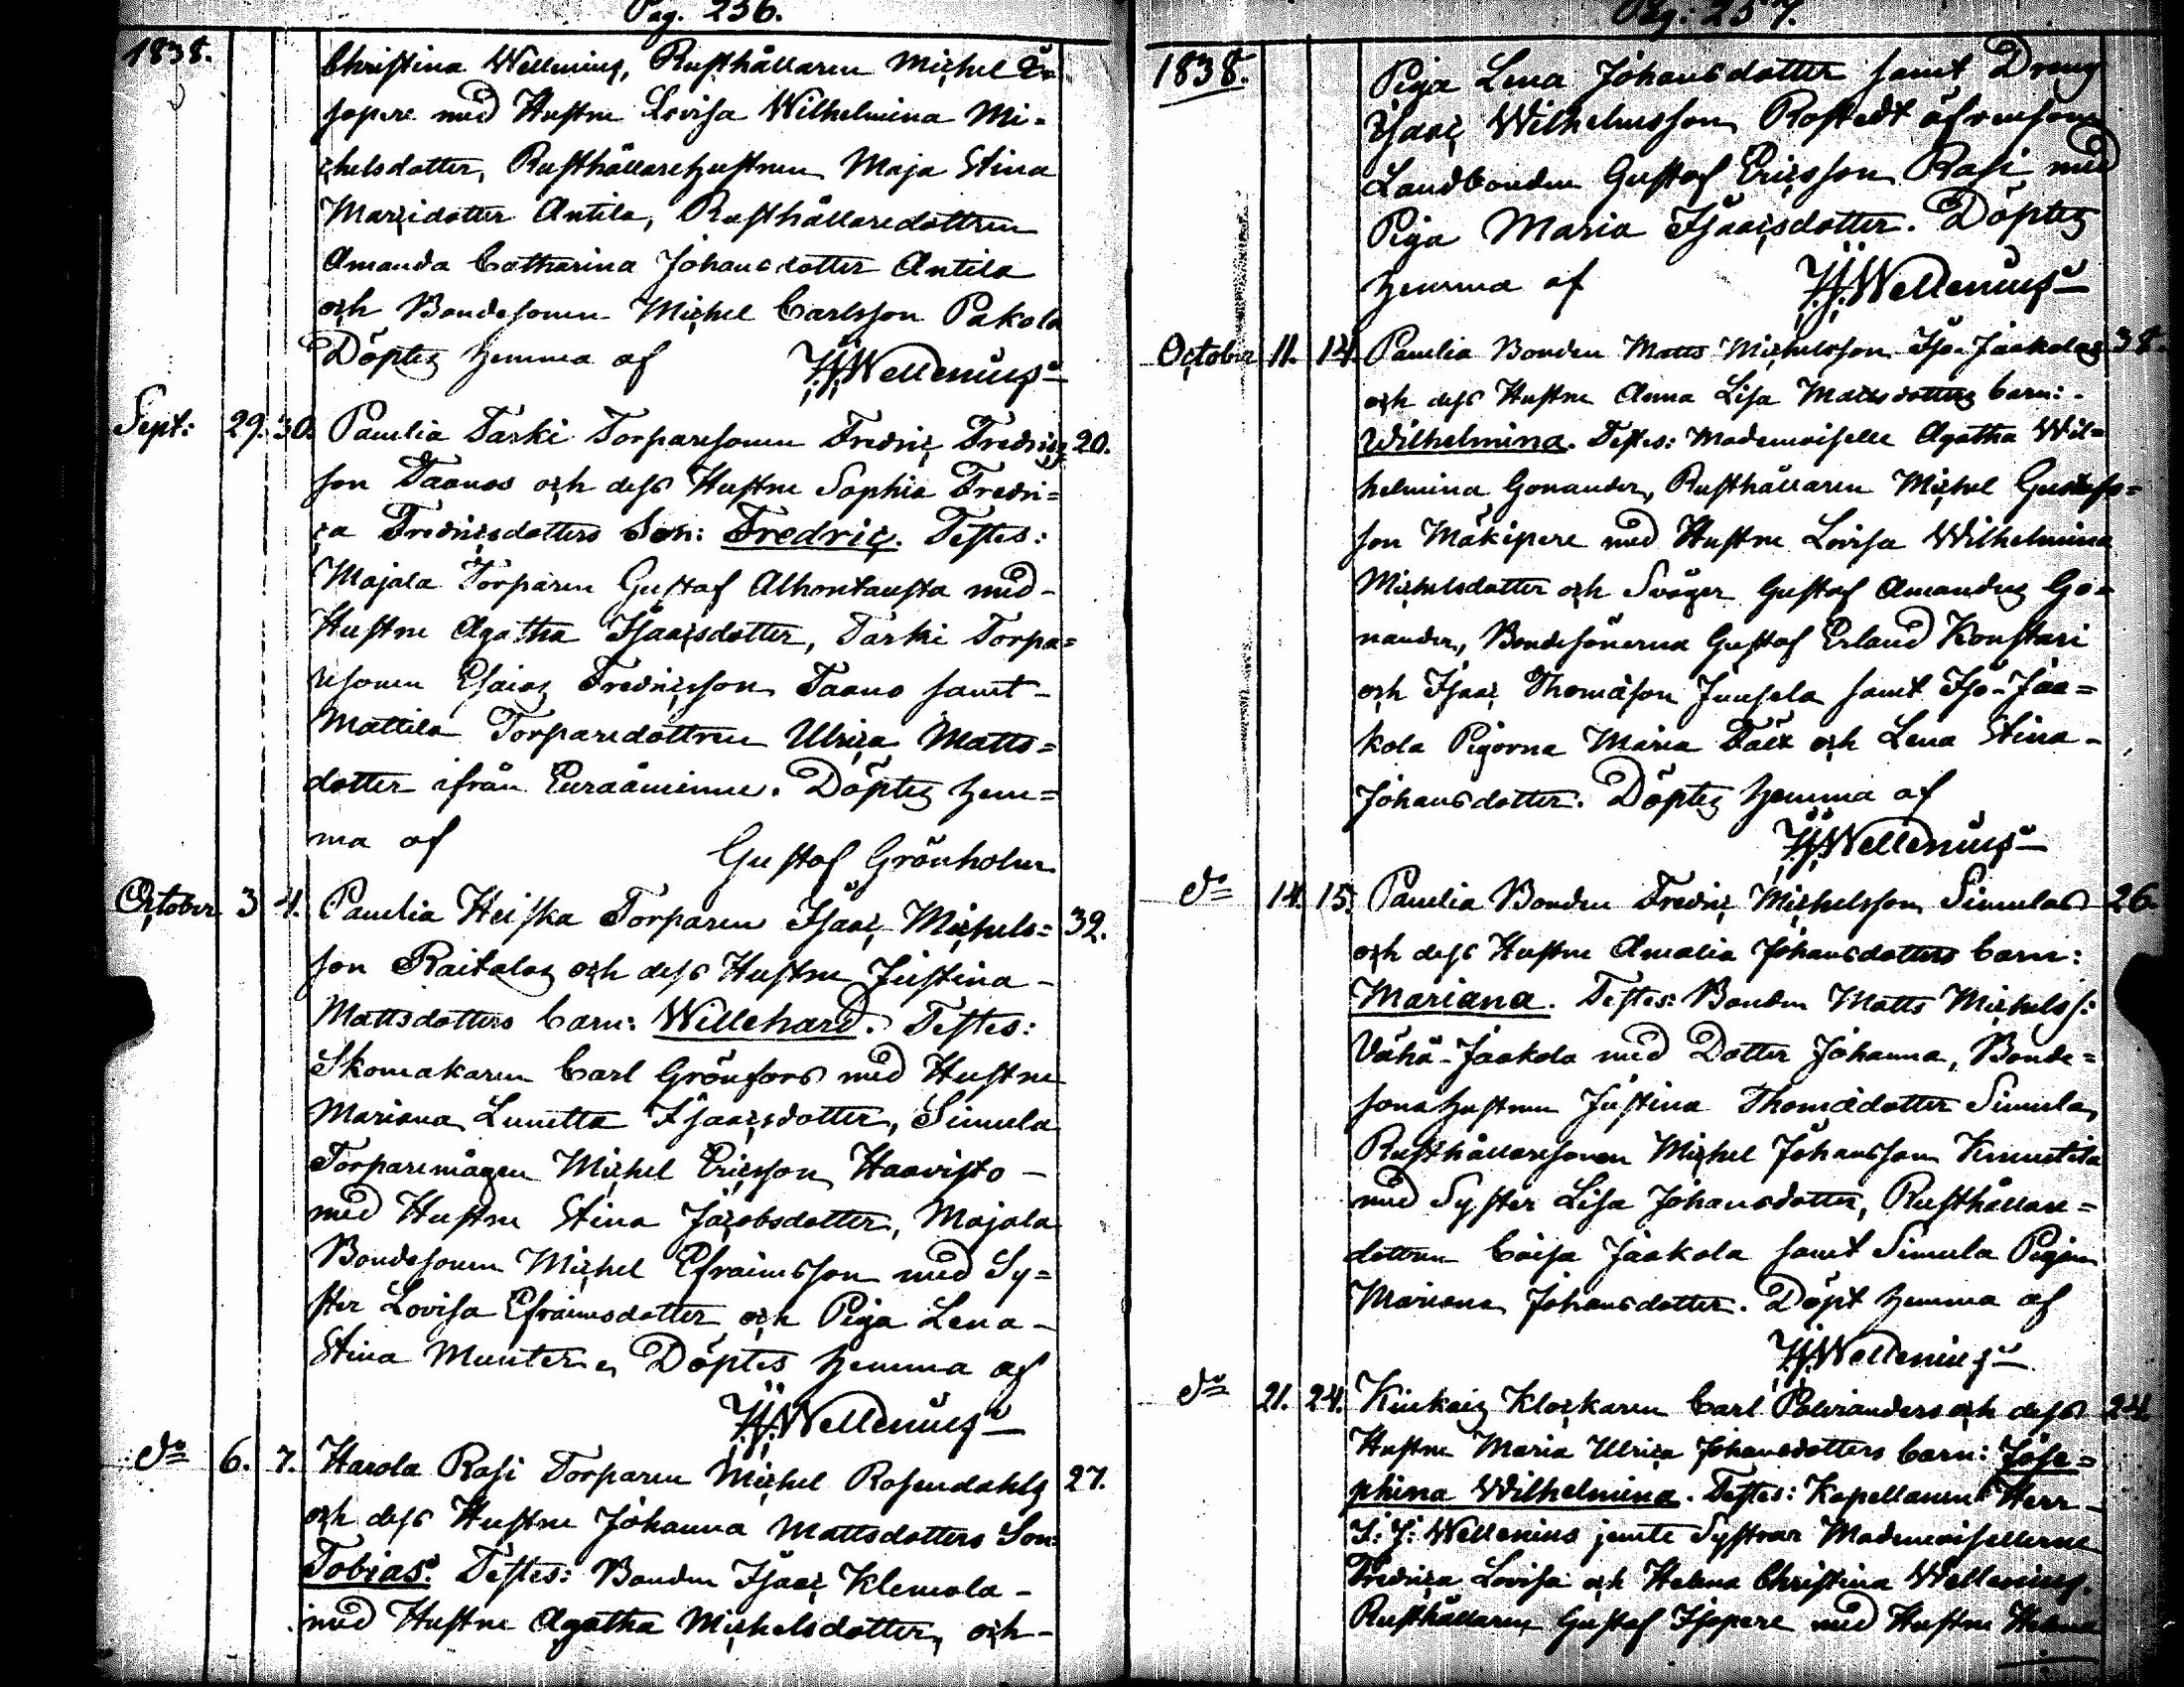 Pag. 236.
1838.
Christina Wellenius, Rusthållaren Michel
sopere med Hustru Lovisa Wilhelmina Mi-
chelsdotter, Rusthållarehustrun Maja Stina
Maricidotter Antila, Rusthållaredottren
Amanda Catharina Johansdotter Antila
och Bondesonen Michel Carlsson Pakola
Döptes hemma af J.J. Wellenius
Sept: 29. 30. Panelia Tarki Torparesonen Fredric Fredrics 20.
son Taanos och dess Hustru Sophia Fredri-
ca Fredricsdotters Son: Fredric. Testes:
Majala Torparen Gustaf Alhontausta med
Hustru Agatha Isaacsdotter, Tarki Torpa-
resonen Esaias Fredricsson Taano samt
Mattila Torparedottren Ulrica Matts-
dotter ifrån Euraåminne. Döptes hem-
ma af Gustaf Grönholm
October 3 4. Panelia Heiska Torparen Isaac Michels- 32.
son Raitalas och dess Hustru Justina
Mattsdotters barn: Willehard. Testes:
Skomakaren Carl Grönfors med Hustru
Mariana Lunetta Isaacsdotter, Simula
Torparemågen Michel Ericsson Haavisto
med Hustru Stina Jacobsdotter, Majala
Bondesonen Michel Efraimsson med Sy-
ster Lovisa Efraimsdotter och Piga Lena
Stina Munter. Döptes hemma af
J.J. Wellenius
do 6. 7. Harola Rasi Torparen Michel Rosendahls 27.
och dess Hustru Johanna Mattsdotters Son:
Tobias. Testes: Bonden Isaac Klemola
med Hustru Agatha Michelsdotter, och
Pag: 237.
1838.
Piga Lena Johansdotter samt Dreng
Isaac Wilhelmsson Rostedt äfvensom
Landbonden Gustaf Ericsson Rasi med
Piga Maria Isaacsdotter. Döptes
hemma af J.J. Wellenius
October 11. 14. Panelia Bonden Matts Michelsson Iso-Jaakolas 38.
och dess Hustru Anna Lisa Mattsdotters barn:
Wilhelmina. Testes: Mademoiselle Agatha Wil-
helmina Gonander, Rusthållaren Michel Gustafs-
son Mäkipere med Hustru Lovisa Wilhelmina
Michelsdotter och Svåger Gustaf Amandus Go-
nander, Bondesönerna Gustaf Erland Konstari
och Isaac Thomasson Junsela samt Iso-Jaa-
kola Pigorna Maria Talx och Lena Stina
Johansdotter. Döptes hemma af
J.J. Wellenius
do 14. 15. Panelia Bonden Fredric Michelsson Simulas 26.
och dess Hustru Amalia Johansdotters barn:
Mariana. Testes: Bonden Matts Michelss:
Vähä-Jaakola med Dotter Johanna, Bonde-
sonahustrun Justina Thomædotter Simula,
Rusthållaresonen Michel Johansson Knuutila
med Syster Lisa Johansdotter, Rusthållare-
dottren Caisa Jaakola samt Simula Pigan
Mariana Johansdotter. Döpt hemma af
J.J. Wellenius
do 21. 24. Kiukais Klockaren Carl Polvianders och dess 24.
Hustru Maria Ulrica Johansdotters barn: Jose-
phina Wilhelmina. Testes: Kapellanen Herr
J: J: Wellenius jemte Systrar Mademoisellerne
Fredrica Lovisa och Helena Christina Wellenius.
Rusthållaren Gustaf Isopere med Hustru Helena